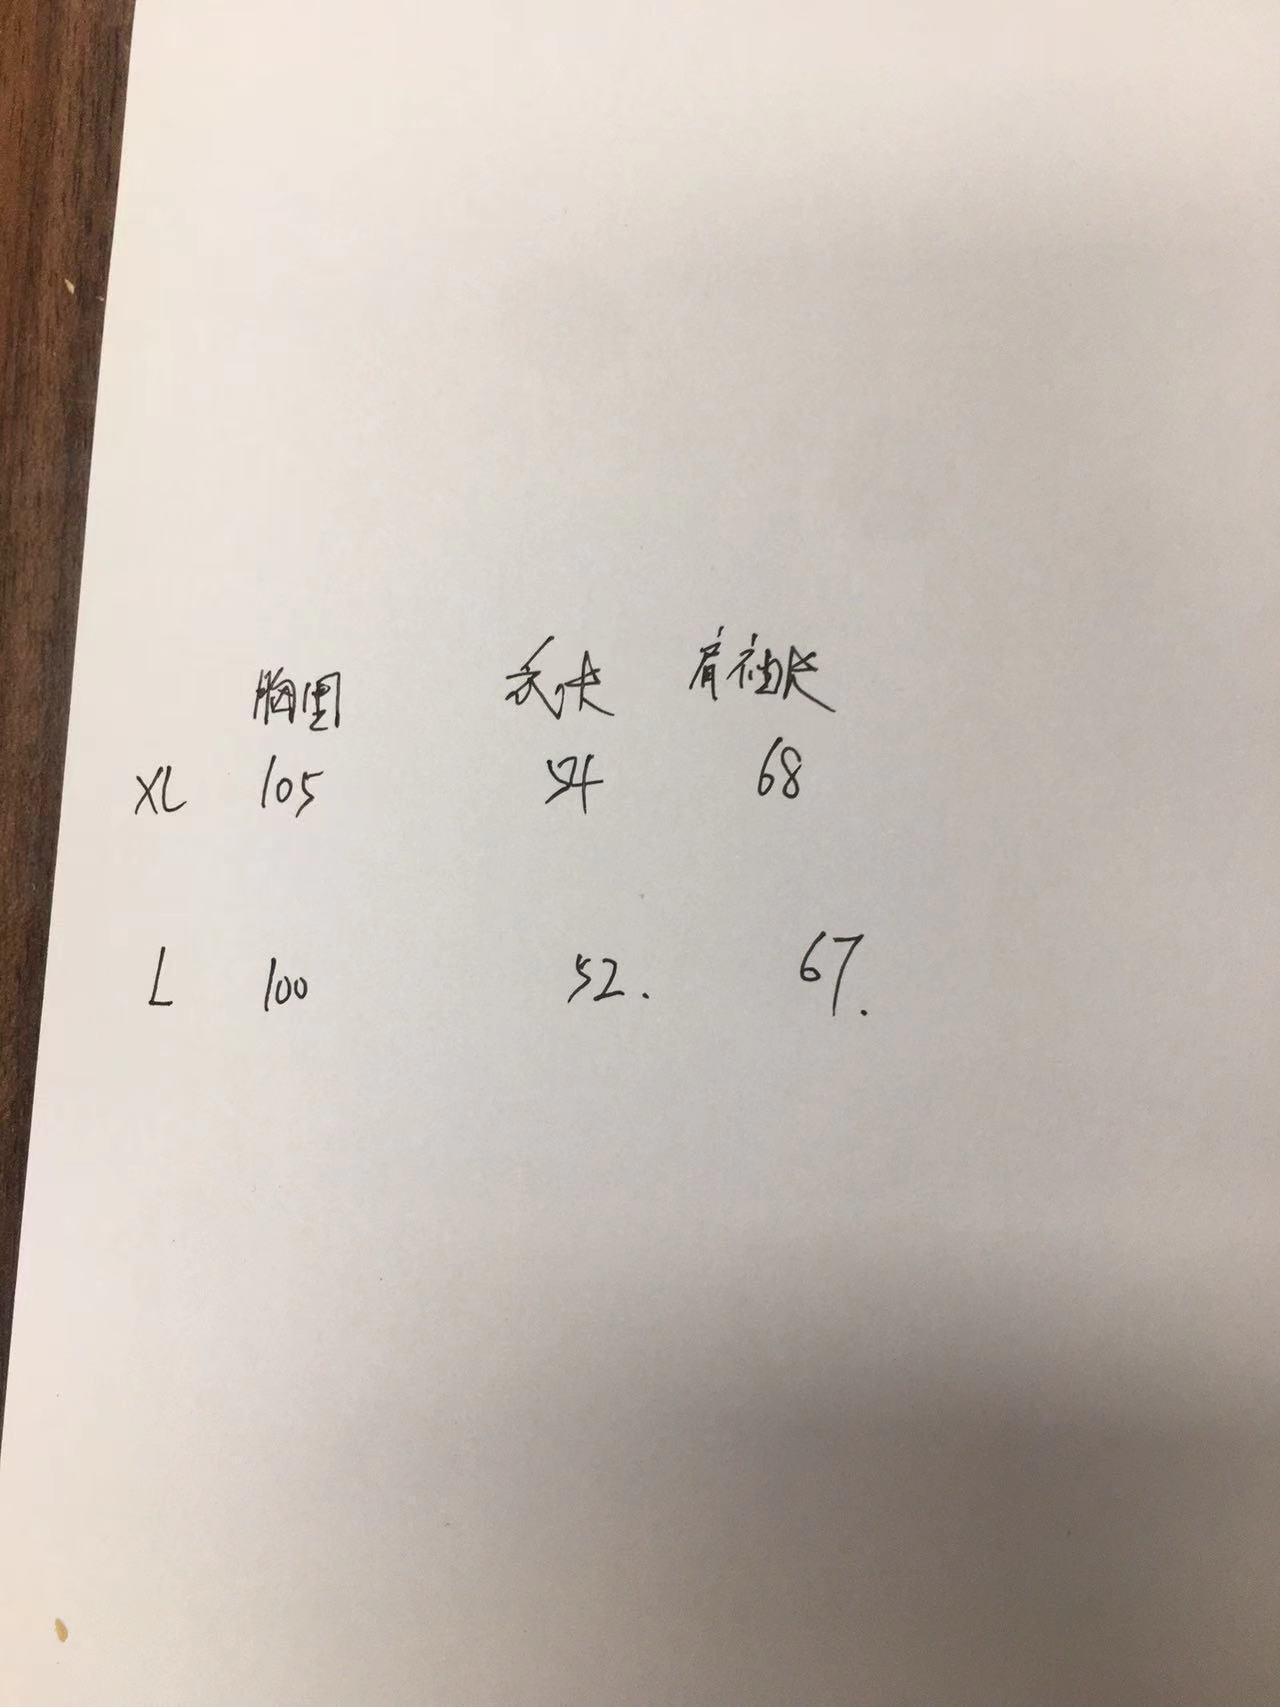 胸围 衣长 肩袖长
XL 105 54 68
L 100 52. 67.